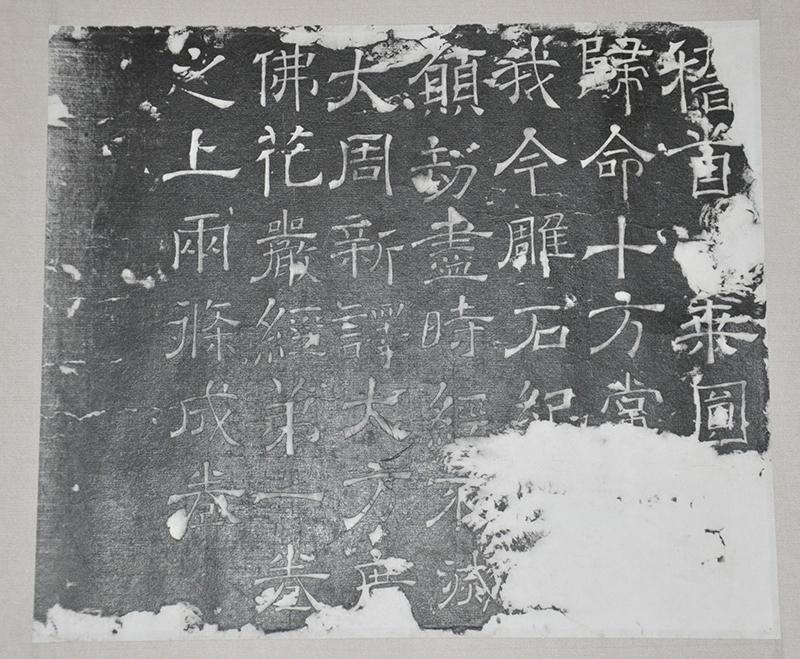 稽首一乘圓
歸命十方常
我今雕石紀
願劫盡時經不滅
大周新譯大方廣
佛花嚴經第一卷
之上兩條成卷